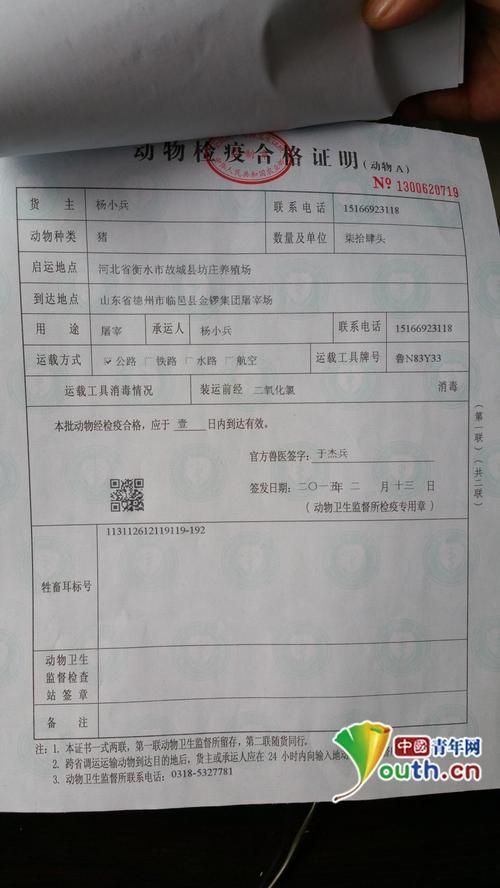 动物检疫合格证明（动物A）
№ 1300620719
货主 杨小兵 联系电话 15166923118
动物种类 猪 数量及单位 柒拾肆头
启运地点 河北省衡水市故城县坊庄养殖场
到达地点 山东省德州市临邑县金锣集团屠宰场
用途 屠宰 承运人 杨小兵 联系电话 15166923118
运载方式 ☑公路 □铁路 □水路 □航空 运载工具牌号 鲁N83Y33
运载工具消毒情况 装运前经 二氧化氯 消毒
本批动物经检疫合格，应于 壹 日内到达有效。
官方兽医签字：于杰兵
签发日期：二〇一五年 二 月 十三 日
（动物卫生监督所检疫专用章）
（第一联）（共二联）
牲畜耳标号 113112612119119-192
动物卫生
监督检查
站签章
备注
注：1. 本证书一式两联，第一联动物卫生监督所留存，第二联随货同行。
2. 跨省调运动物到达目的地后，货主或承运人应在 24 小时内向输入地动
3. 动物卫生监督所联系电话：0318-5327781
中國青年网
Youth.cn